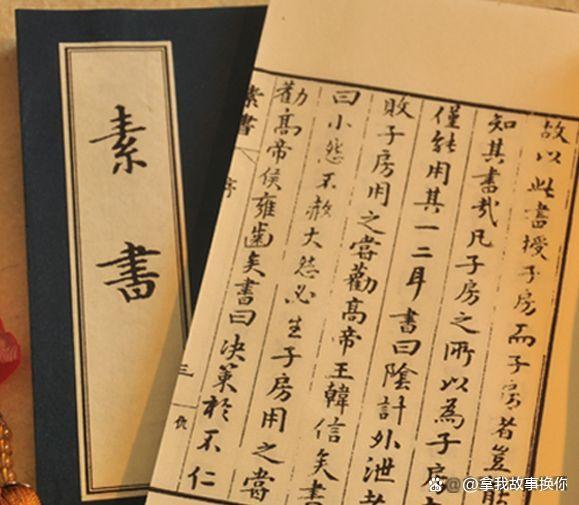 素書
故以此書授子房而子房者豈能
知其書哉凡子房之所以為子房
僅能用其一二耳書曰陰計外泄者
敗子房用之嘗勸高帝王韓信矣書
曰小怨不赦大怨必生子房用之嘗
勸高帝侯雍齒矣書曰決策於不仁
素書 序 三
@@拿我故事换你